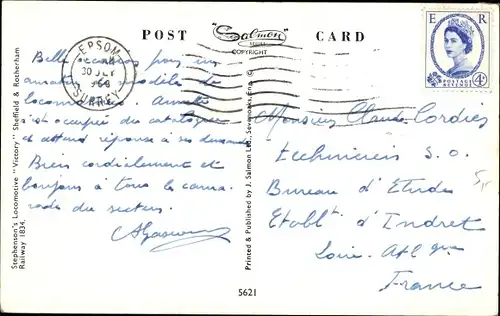 POST
Salmon
SERIES
COPYRIGHT
CARD
E R
POSTAGE REVENUE
4D
EPSOM
30 JLY
1960
SURREY
Belle occasion pour un
amateur modèle de
locomotives. Amitié
s'est occupée du catalogue
et attend réponse à ses demandes
Bien cordialement et
bonjour à tous les cama
rades du secteur.
Monsieur Claude Cordier
technicien S.O.
Bureau d'Etudes
Etablt d'Indret
Loire-Atl que
France
Stephenson's Locomotive "Victory" - Sheffield & Rotherham
Railway 1834.
Printed & Published by J. Salmon Ltd., Sevenoaks, Eng. ©
5621